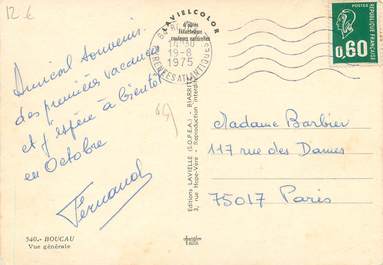 12 €
LAVIELCOLOR
d'après
Ektachrome
couleurs naturelles
14H30
19-8
1975
PYRENEES ATLANTIQUES
REPUBLIQUE FRANÇAISE
0,60
Amical souvenir
des premières vacances
et j'espère à bientôt
en Octobre
Fernand
64
Editions LAVIELLE (S.O.P.E.A.) - BIARRITZ
Reproduction interdite
Madame Barbier
117 rue des Dames
75017 Paris
340.- BOUCAU
Vue générale